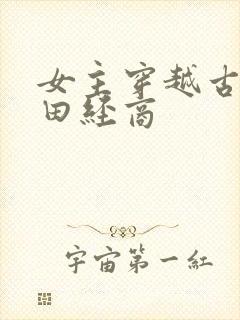 女主穿越古
田経商
宇宙第一紅